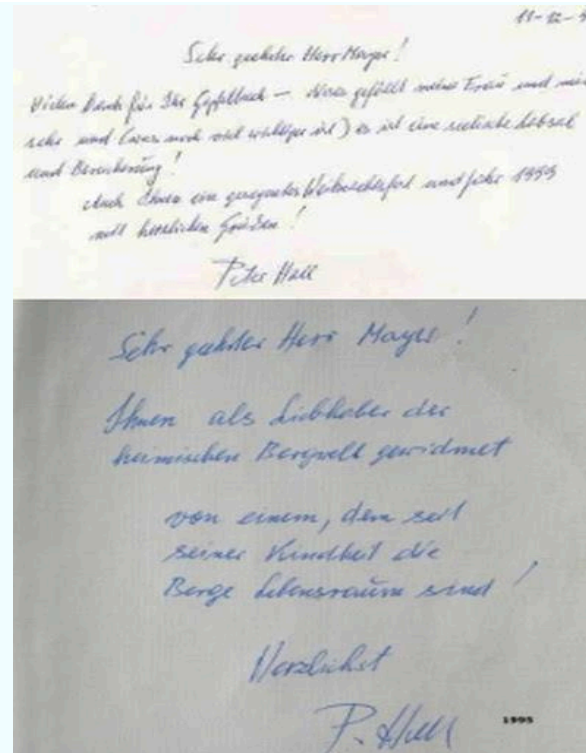 11-12-9
Sehr geehrter Herr Mayer!
Vielen Dank für Ihr Gipfelbuch — es gefällt meiner Frau und mir
sehr und (was noch viel wichtiger ist) es ist eine seelische Labsal
und Bereicherung!
Auch Ihnen ein gesegnetes Weihnachtsfest und Jahr 1999
mit herzlichen Grüßen!
Peter Hall
Sehr geehrter Herr Mayer!
Ihnen als Liebhaber der
heimischen Bergwelt gewidmet
von einem, dem seit
seiner Kindheit die
Berge Lebensraum sind!
Herzlichst
P. Hall
1995